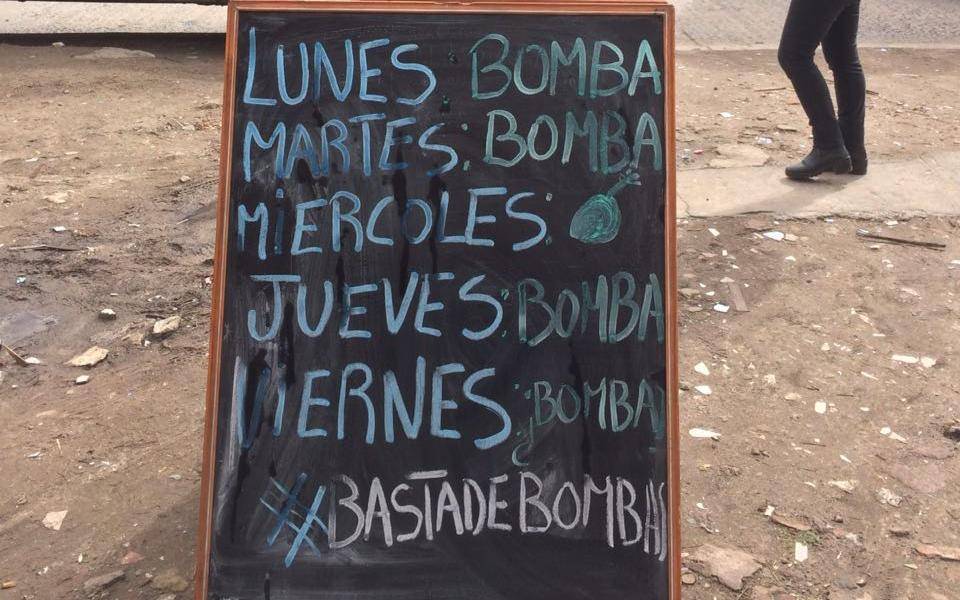 LUNES: BOMBA
MARTES: BOMBA
MIERCOLES:
JUEVES: BOMBA
VIERNES: ¡BOMBA!
#BASTADEBOMBAS